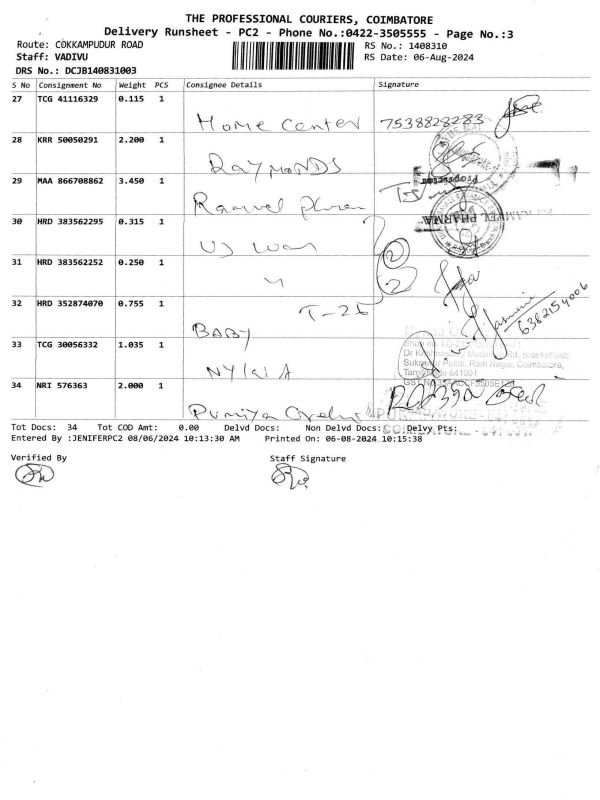 THE PROFESSIONAL COURIERS, COIMBATORE
Delivery Runsheet - PC2 - Phone No.:0422-3505555 - Page No.:3
Route: COKKAMPUDUR ROAD
RS No.: 1408310
Staff: VADIVU
RS Date: 06-Aug-2024
DRS No.: DCJB140831003
S No Consignment No Weight PCS Consignee Details Signature
27 TCG 41116329 0.115 1
Home Center 7538828283
28 KRR 50050291 2.200 1
RAYMONDS
29 MAA 866708862 3.450 1
30 HRD 383562295 0.315 1
31 HRD 383562252 0.250 1
32 HRD 352874070 0.755 1
T-26
BABY
6382154006
33 TCG 30056332 1.035 1
Ram Nagar, Coimbatore,
641001
34 NRI 576363 2.000 1
Tot Docs: 34 Tot COD Amt: 0.00 Delvd Docs: Non Delvd Docs: Delvy Pts:
Entered By :JENIFERPC2 08/06/2024 10:13:30 AM Printed On: 06-08-2024 10:15:38
Verified By Staff Signature